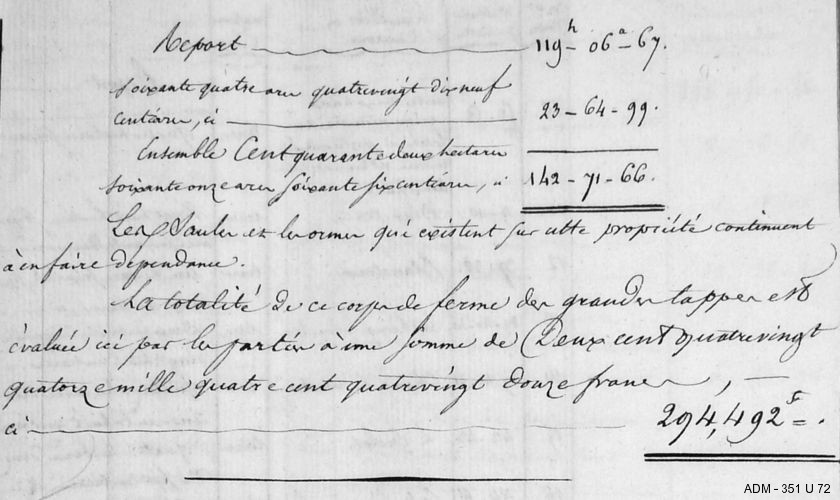 Report 119h - 06a - 67.
soixante quatre ares quatrevingt dix neuf
centiares, ci 23 - 64 - 99.
Ensemble Cent quarante deux hectares
soixante onze ares soixante six centiares, ci 142 - 71 - 66.
Les Saules et les ormes qui existent sur cette propriété continuent
à en faire dependance.
La totalité de ce corps de ferme des grandes tappes est
évaluée ici par les parties à une somme de Deux cent quatrevingt
quatorze mille quatre cent quatrevingt douze francs,
ci 294,492f =.
ADM - 351 U 72